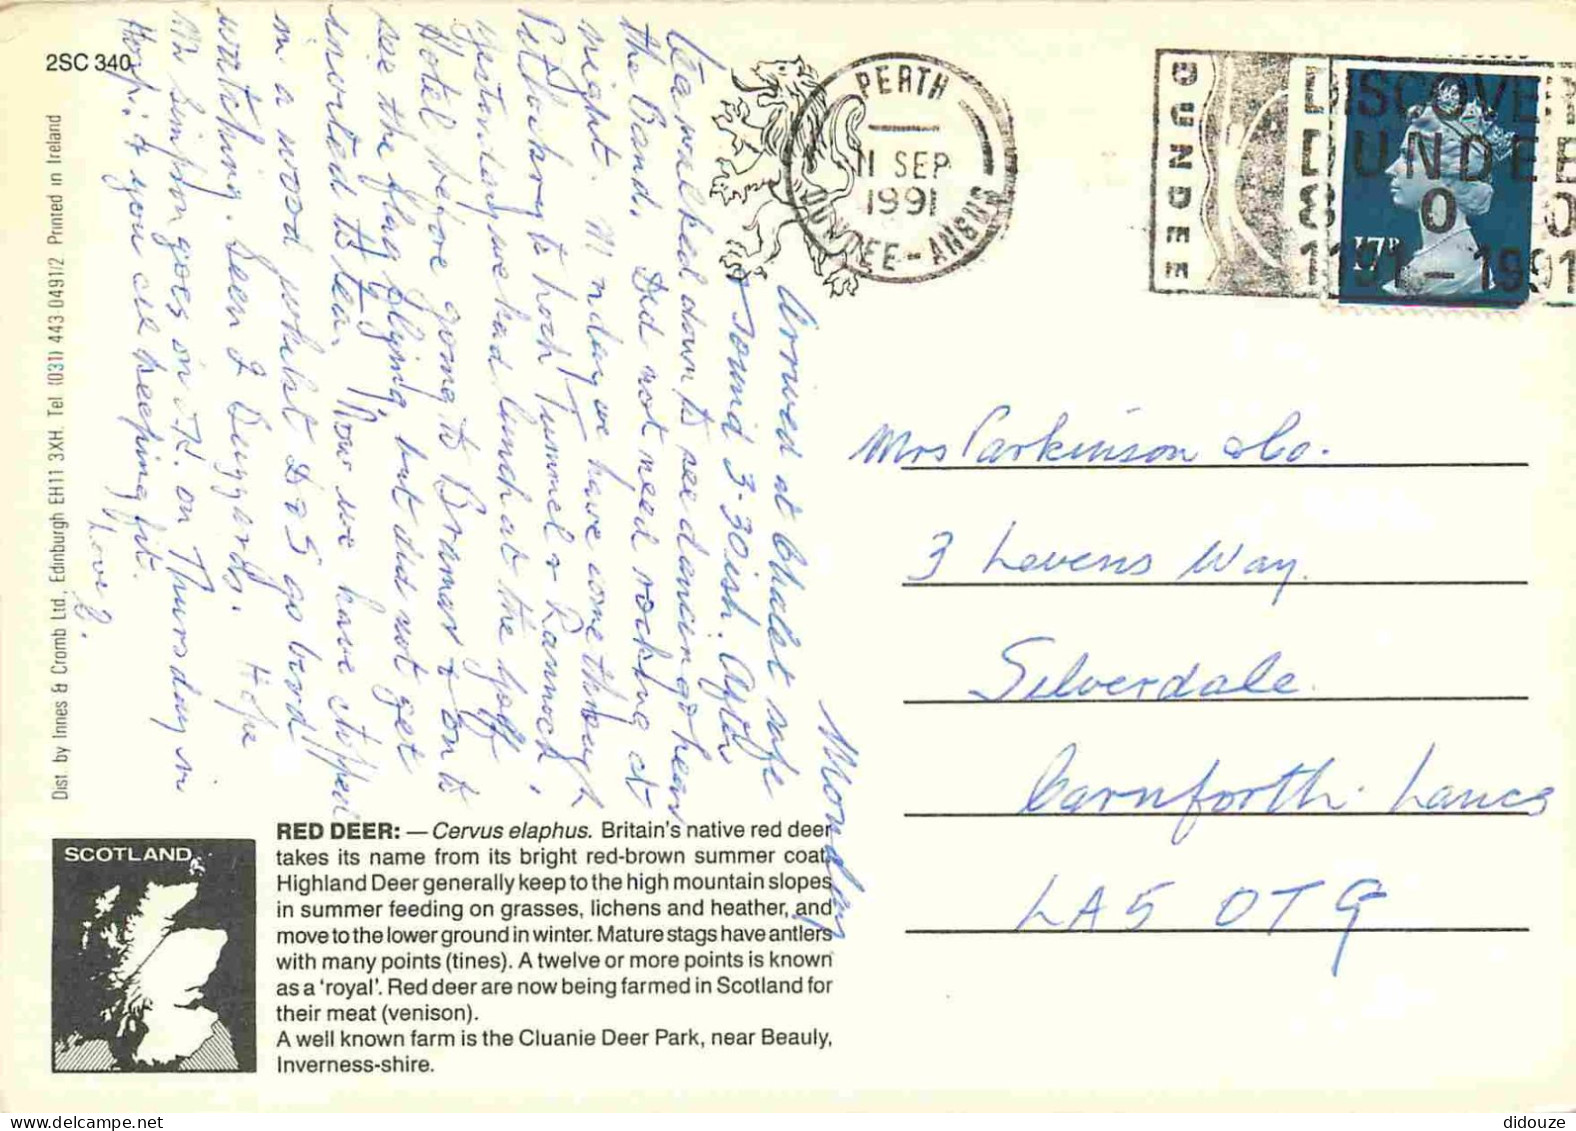 2SC 340
Dist. by Innes & Cromb Ltd., Edinburgh EH11 3XH. Tel (031) 443 0491/2 Printed in Ireland
Monday
Arrived at Chalet safe
& sound 3-30ish. After
tea walked down to see dancing & hear
the Band. Did not need rocking at
night. Monday we have come through
Pitlochry to Loch Tummel & Rannoch,
yesterday we had lunch at the Golf
Hotel before going to Braemar & on to
see the flag flying, but did not get
invited to tea. Now we have stopped
in a wood whilst D & S go bird
watching. Seen 2 Buzzards. Hope
Mr Simpson goes on O.K. on Thursday in
Hosp: & you are keeping fit.
Love
PERTH
11 SEP
1991
DUNDEE - ANGUS
DUNDEE
DISCOVERY
DUNDEE
1191 - 1991
17P
Mrs Parkinson & Co.
3 Levens Way.
Silverdale.
Carnforth. Lancs
LA5 0TG
SCOTLAND
RED DEER: — Cervus elaphus. Britain's native red deer
takes its name from its bright red-brown summer coat.
Highland Deer generally keep to the high mountain slopes
in summer feeding on grasses, lichens and heather, and
move to the lower ground in winter. Mature stags have antlers
with many points (tines). A twelve or more points is known
as a 'royal'. Red deer are now being farmed in Scotland for
their meat (venison).
A well known farm is the Cluanie Deer Park, near Beauly,
Inverness-shire.
delcampe.net
didouze